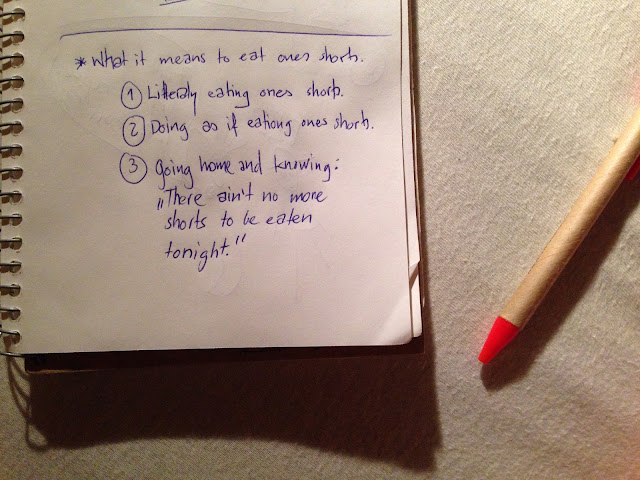 * What it means to eat ones shorts.
① Litteraly eating ones shorts.
② Doing as if eationg ones shorts.
③ Going home and knowing:
„There ain't no more
shorts to be eaten
tonight."